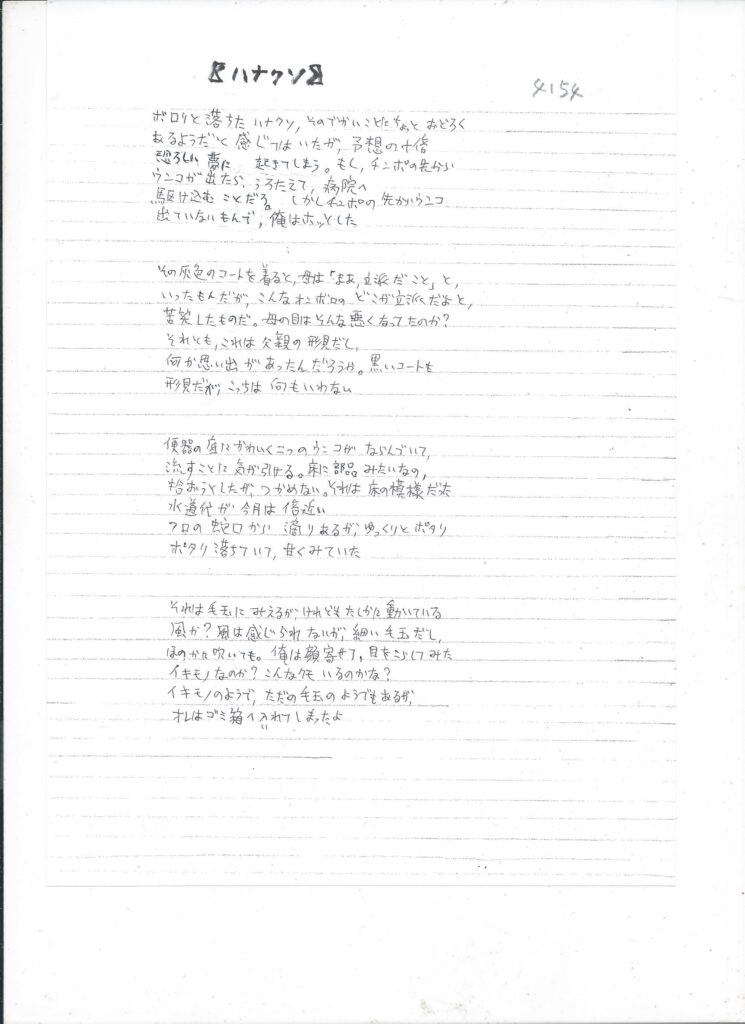 【ハナクソ】
4154
ボロリと落ちたハナクソ,そのでかいことにちょっとおどろく
あるようだと感じてはいたが,予想の十倍
恐ろしい夢に 起きてしまう。もし,チンポの先から
ウンコが出たら,うろたえて,病院へ
駆け込むことだろ。しかしチンポの先からウンコ
出ていないもんで,俺はホッとした
その灰色のコートを着ると,母は「まあ,立派だこと」と,
いったもんだが,こんなオンボロのどこが立派だよと,
苦笑したものだ。母の目はそんな悪くなってたのか?
それとも,これは父親の形見だし,
何か思い出があったんだろうか。黒いコートも
形見だが,こっちは何もいわない
便器の底にかわいく二つのウンコがならんでいて,
流すことに気が引ける。床に部品みたいなの,
拾おうとしたが,つかめない。それは床の模様だった
水道代が今月は倍近い
フロの蛇口から滴りあるが,ゆっくりとポタリ
ポタリ落ちていて,甘くみていた
それは毛玉にみえるが,けれどもたしかに動いている
風か?風は感じられないが,細い毛玉だし,
ほのかに吹いても。俺は顔寄せて,目をこらしてみた
イキモノなのか?こんなクモいるのかな?
イキモノのようで,ただの毛玉のようでもあるが,
オレはゴミ箱へ入れてしまったよ